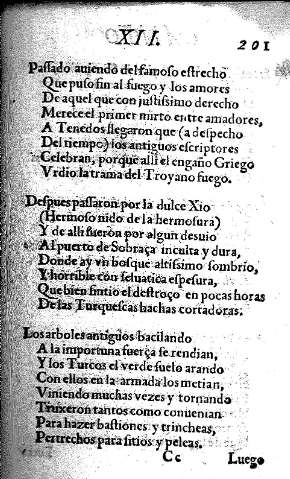 XII.
201
Passado auiendo del famoso estrecho
Que puso fin al fuego y los amores
De aquel que con justissimo derecho
Merece el primer mirto entre amadores,
A Tenedos llegaron que (a despecho
Del tiempo) los antiguos escriptores
Celebran, porque alli el engaño Griego
Vrdio la trama del Troyano fuego.
Despues passaron por la dulce Xio
(Hermoso nido de la hermosura)
Y de alli fueron por algun desuio
Al puerto de Sobraça inculta y dura,
Donde ay vn bosque altissimo sombrio,
Y horrible con seluatica espesura,
Que bien sintio el destroço en pocas horas
De las Turquescas hachas cortadoras.
Los arboles antiguos bacilando
A la importuna fuerça se rendian,
Y los Turcos el verde suelo arando
Con ellos en la armada los metian,
Viniendo muchas vezes y tornando
Truxeron tantos como conuenian
Para hazer bastiones y trincheas,
Pertrechos para sitios y peleas.
Cc Luego